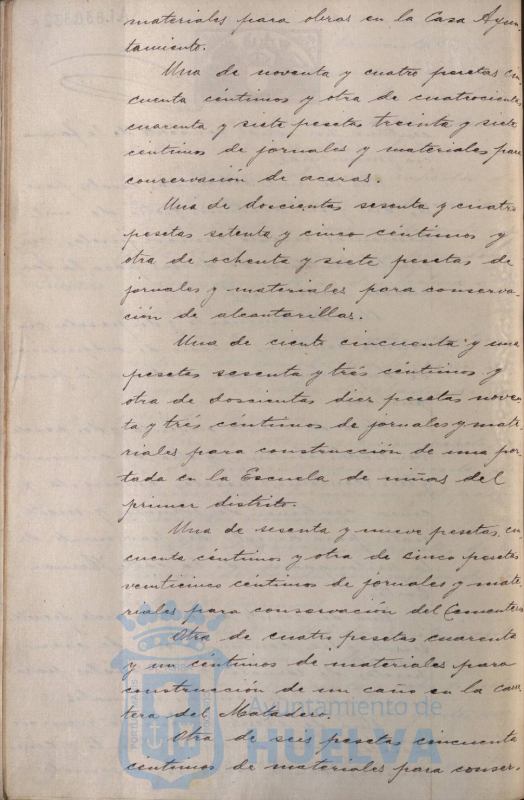 materiales para obras en la Casa Ayun-
tamiento.
Una de noventa y cuatro pesetas cin
cuenta céntimos y otra de cuatrocientas
cuarenta y siete pesetas treinta y siete
céntimos de jornales y materiales para
conservación de aceras.
Una de doscientas sesenta y cuatro
pesetas setenta y cinco céntimos y
otra de ochenta y siete pesetas de
jornales y materiales para conserva-
ción de alcantarillas.
Una de ciento cincuenta y una
pesetas sesenta y trés céntimos y
otra de doscientas diez pesetas noven-
ta y trés céntimos de jornales y mate-
riales para construcción de una por
tada en la Escuela de niñas del
primer distrito.
Una de sesenta y nueve pesetas cin
cuenta céntimos y otra de cinco pesetas
veinticinco céntimos de jornales y mate
riales para conservación del Cementerio
Otra de cuatro pesetas cuarenta
y un céntimos de materiales para
construcción de un caño en la carre
tera del Matadero.
Otra de seis pesetas cincuenta
céntimos de materiales para conser-
Ayuntamiento de
HUELVA